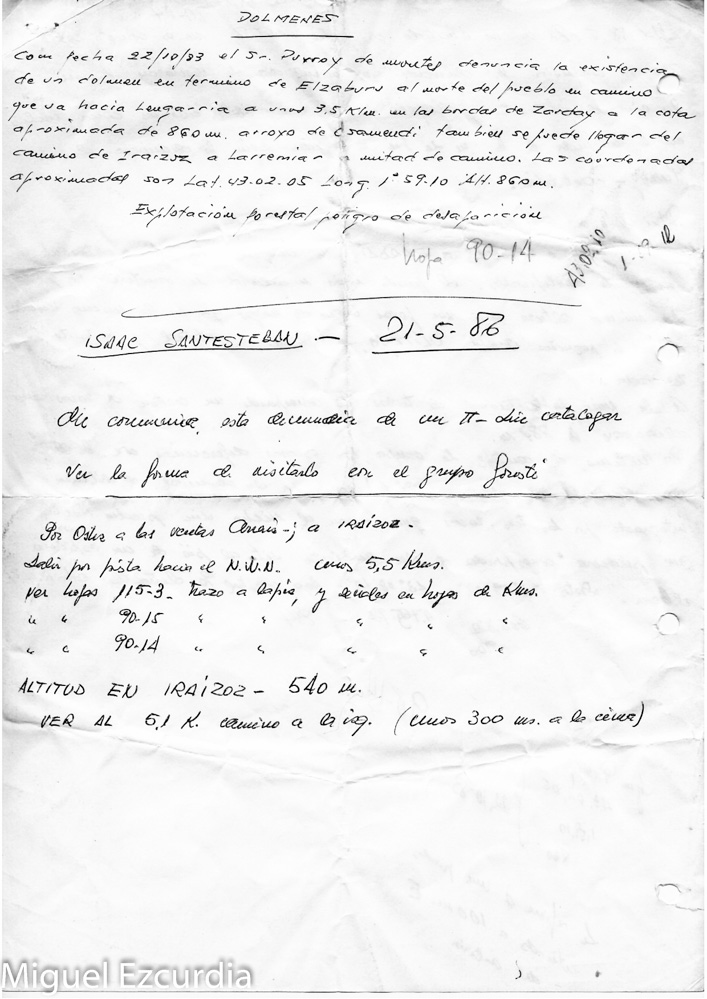 DOLMENES
Con fecha 22/10/83 el Sr. Purroy de montes denuncia la existencia
de un dolmen en termino de Elzaburu al norte del pueblo en camino
que va hacia Lengarria a unos 3,5 Klm. en las bordas de Zarday a la cota
aproximada de 860 m. arroyo de Esamendi tambien se puede llegar del
camino de Iraizoz a Larremiar a mitad de camino. Las coordenadas
aproximadas son Lat. 43.02.05 Long. 1° 59.10 Alt. 860 m.
Explotación forestal peligro de desaparición
hoja 90-14
43.02.10
ISAAC SANTESTEBAN — 21-5-86
Me comunica, esta denuncia de un π - sin catalogar
Ver la forma de visitarlo con el grupo Gorosti
Por Ostiz a las ventas Arraiz -; a IRAÍZOZ -
Salir por pista hacia el N.W.N. unos 5,5 Kms.
Ver hojas 115-3 - trazo a lapiz, y señales en hojas de Kms.
" " 90-15 " " " " "
" " 90-14 " " " " "
ALTITUD EN IRAÍZOZ - 540 m.
VER AL 5,1 K. camino a la izq. (unos 300 ms. a la cima)
Miguel Ezcurdia